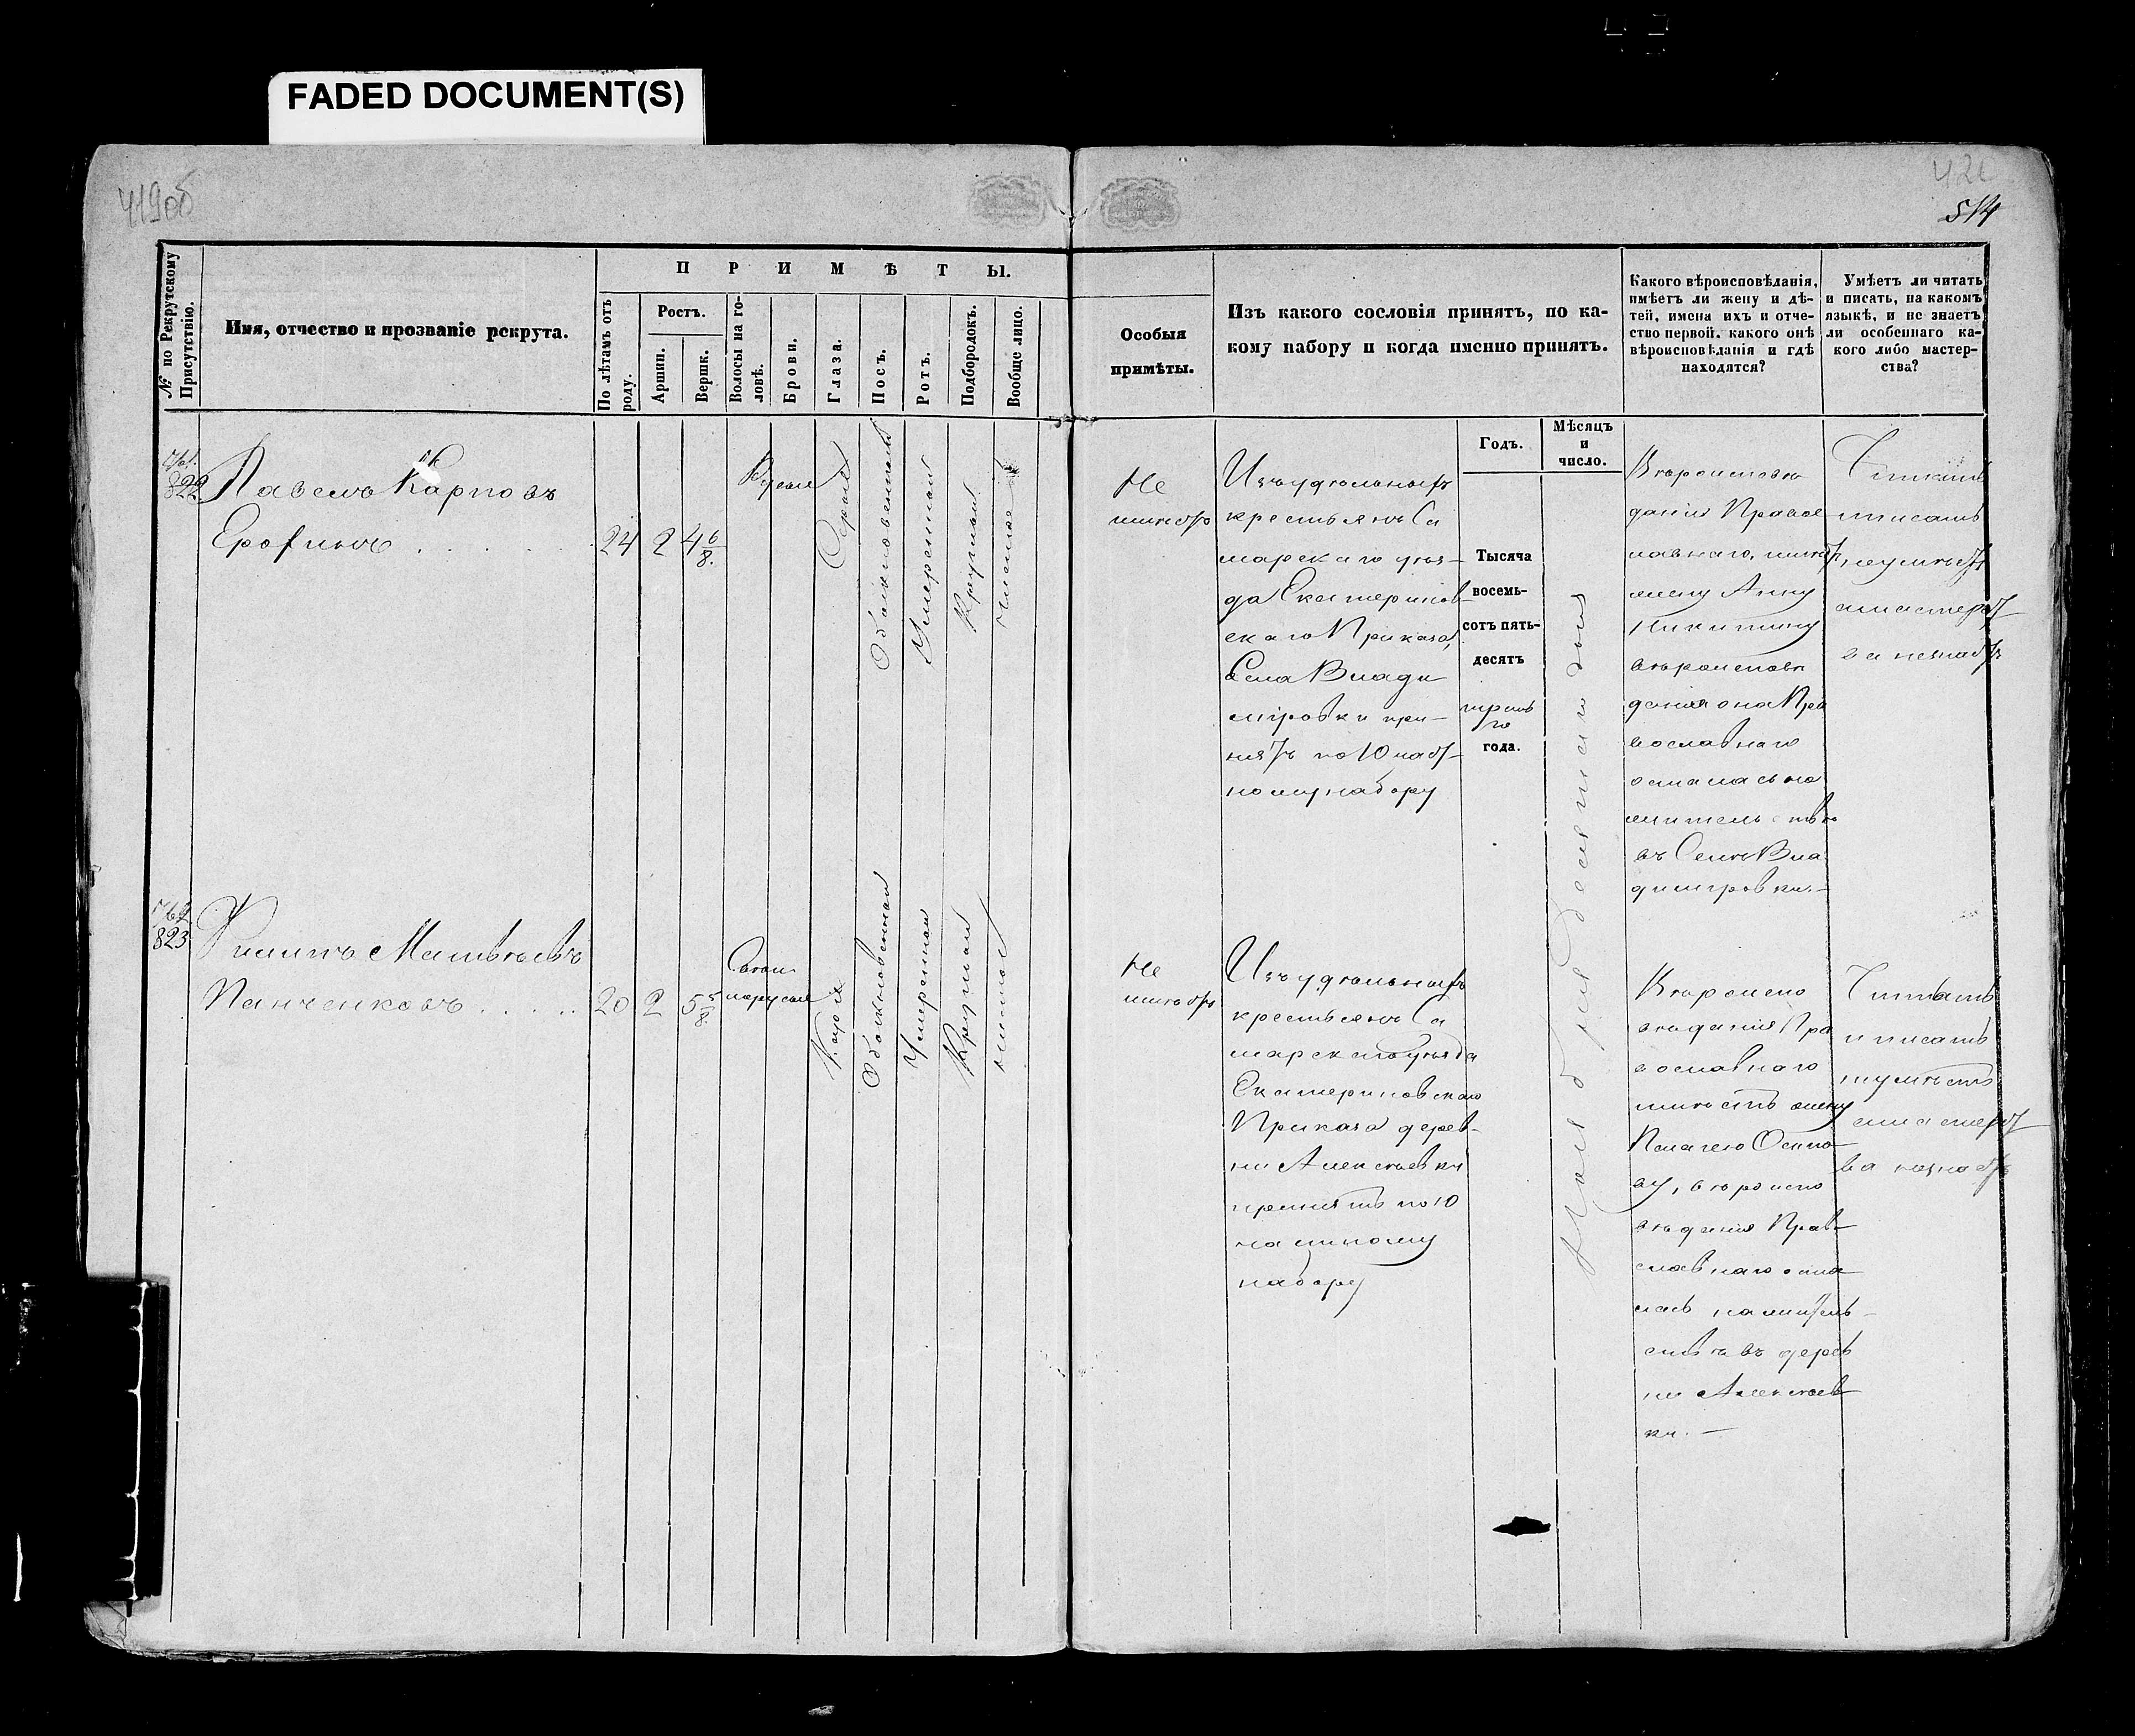 FADED DOCUMENT(S)
419об
514
№ по Рекрутскому Присутствію.
Имя, отчество и прозваніе рекрута.
ПРИМѢТЫ.
По лѣтамъ отъ роду.
Ростъ.
Аршин.
Вершк.
Волосы на головѣ.
Брови.
Глаза.
Носъ.
Ротъ.
Подбородокъ.
Вообще лицо.
Особыя
примѣты.
Изъ какого сословія принятъ, по ка-
кому набору и когда именно принятъ.
Какого вѣроисповѣданія,
имѣетъ ли жену и дѣ-
тей, имена ихъ и отче-
ство первой, какого онѣ
вѣроисповѣданія и гдѣ
находятся?
Умѣетъ ли читать
и писать, на какомъ
языкѣ, и не знаетъ
ли особеннаго ка-
кого либо мастер-
ства?
Годъ.
Мѣсяцъ
и
число.
822
Павелъ Карповъ
Ерофинъ
24
2
4 6/8.
Русые
Серые
Обыкновенный
Умеренный
Круглый
чистое
Не
имеетъ
Изъ удѣльныхъ
крестьянъ Са
марскаго уѣз-
да Екатеринов-
скаго Приказа,
Села Влади
міровки при-
нятъ по 10 част-
ному набору
Тысяча
восемь-
сотъ пять-
десятъ
третьяго
года.
Ноября десятаго дня
Вѣроисповѣ
данія Правос
лавнаго, имѣетъ
жену Анну
Никитину
вѣроисповѣ
данія она Пра
вославнаго
осталась на
жительствѣ
въ Селѣ Вла
диміровки.-
Читать
писать
неумѣетъ
мастерст
ва незнаетъ
823
Филипъ Матвѣевъ
Панченковъ
20
2
5 5/8.
Светлорусые
Карие
Обыкновенный
Умеренный
Круглый
чистое
Не
имеетъ
Изъ удѣльныхъ
крестьянъ Са
марскаго уѣзда
Екатериновскаго
Приказа дерев-
ни Алексѣевки
принятъ по 10
частному
набору
Вѣроиспо
вѣданія Пра
вославнаго
имѣетъ жену
Пелагею Осипо
ву, вѣроиспо
вѣданія Прав-
славнаго оста
лась на житель-
ствѣ въ дерев
ни Алексѣев
ки. -
Читать
и писать
неумѣетъ
мастерст
ва незнаетъ